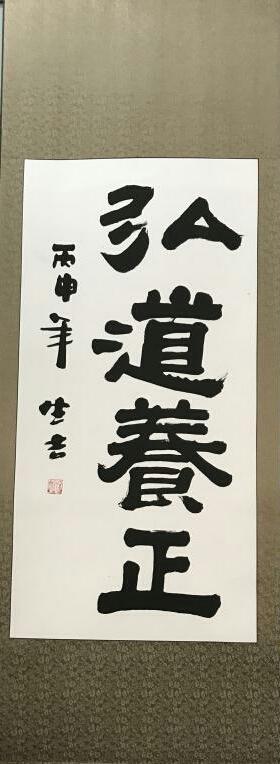 弘道養正
丙申年